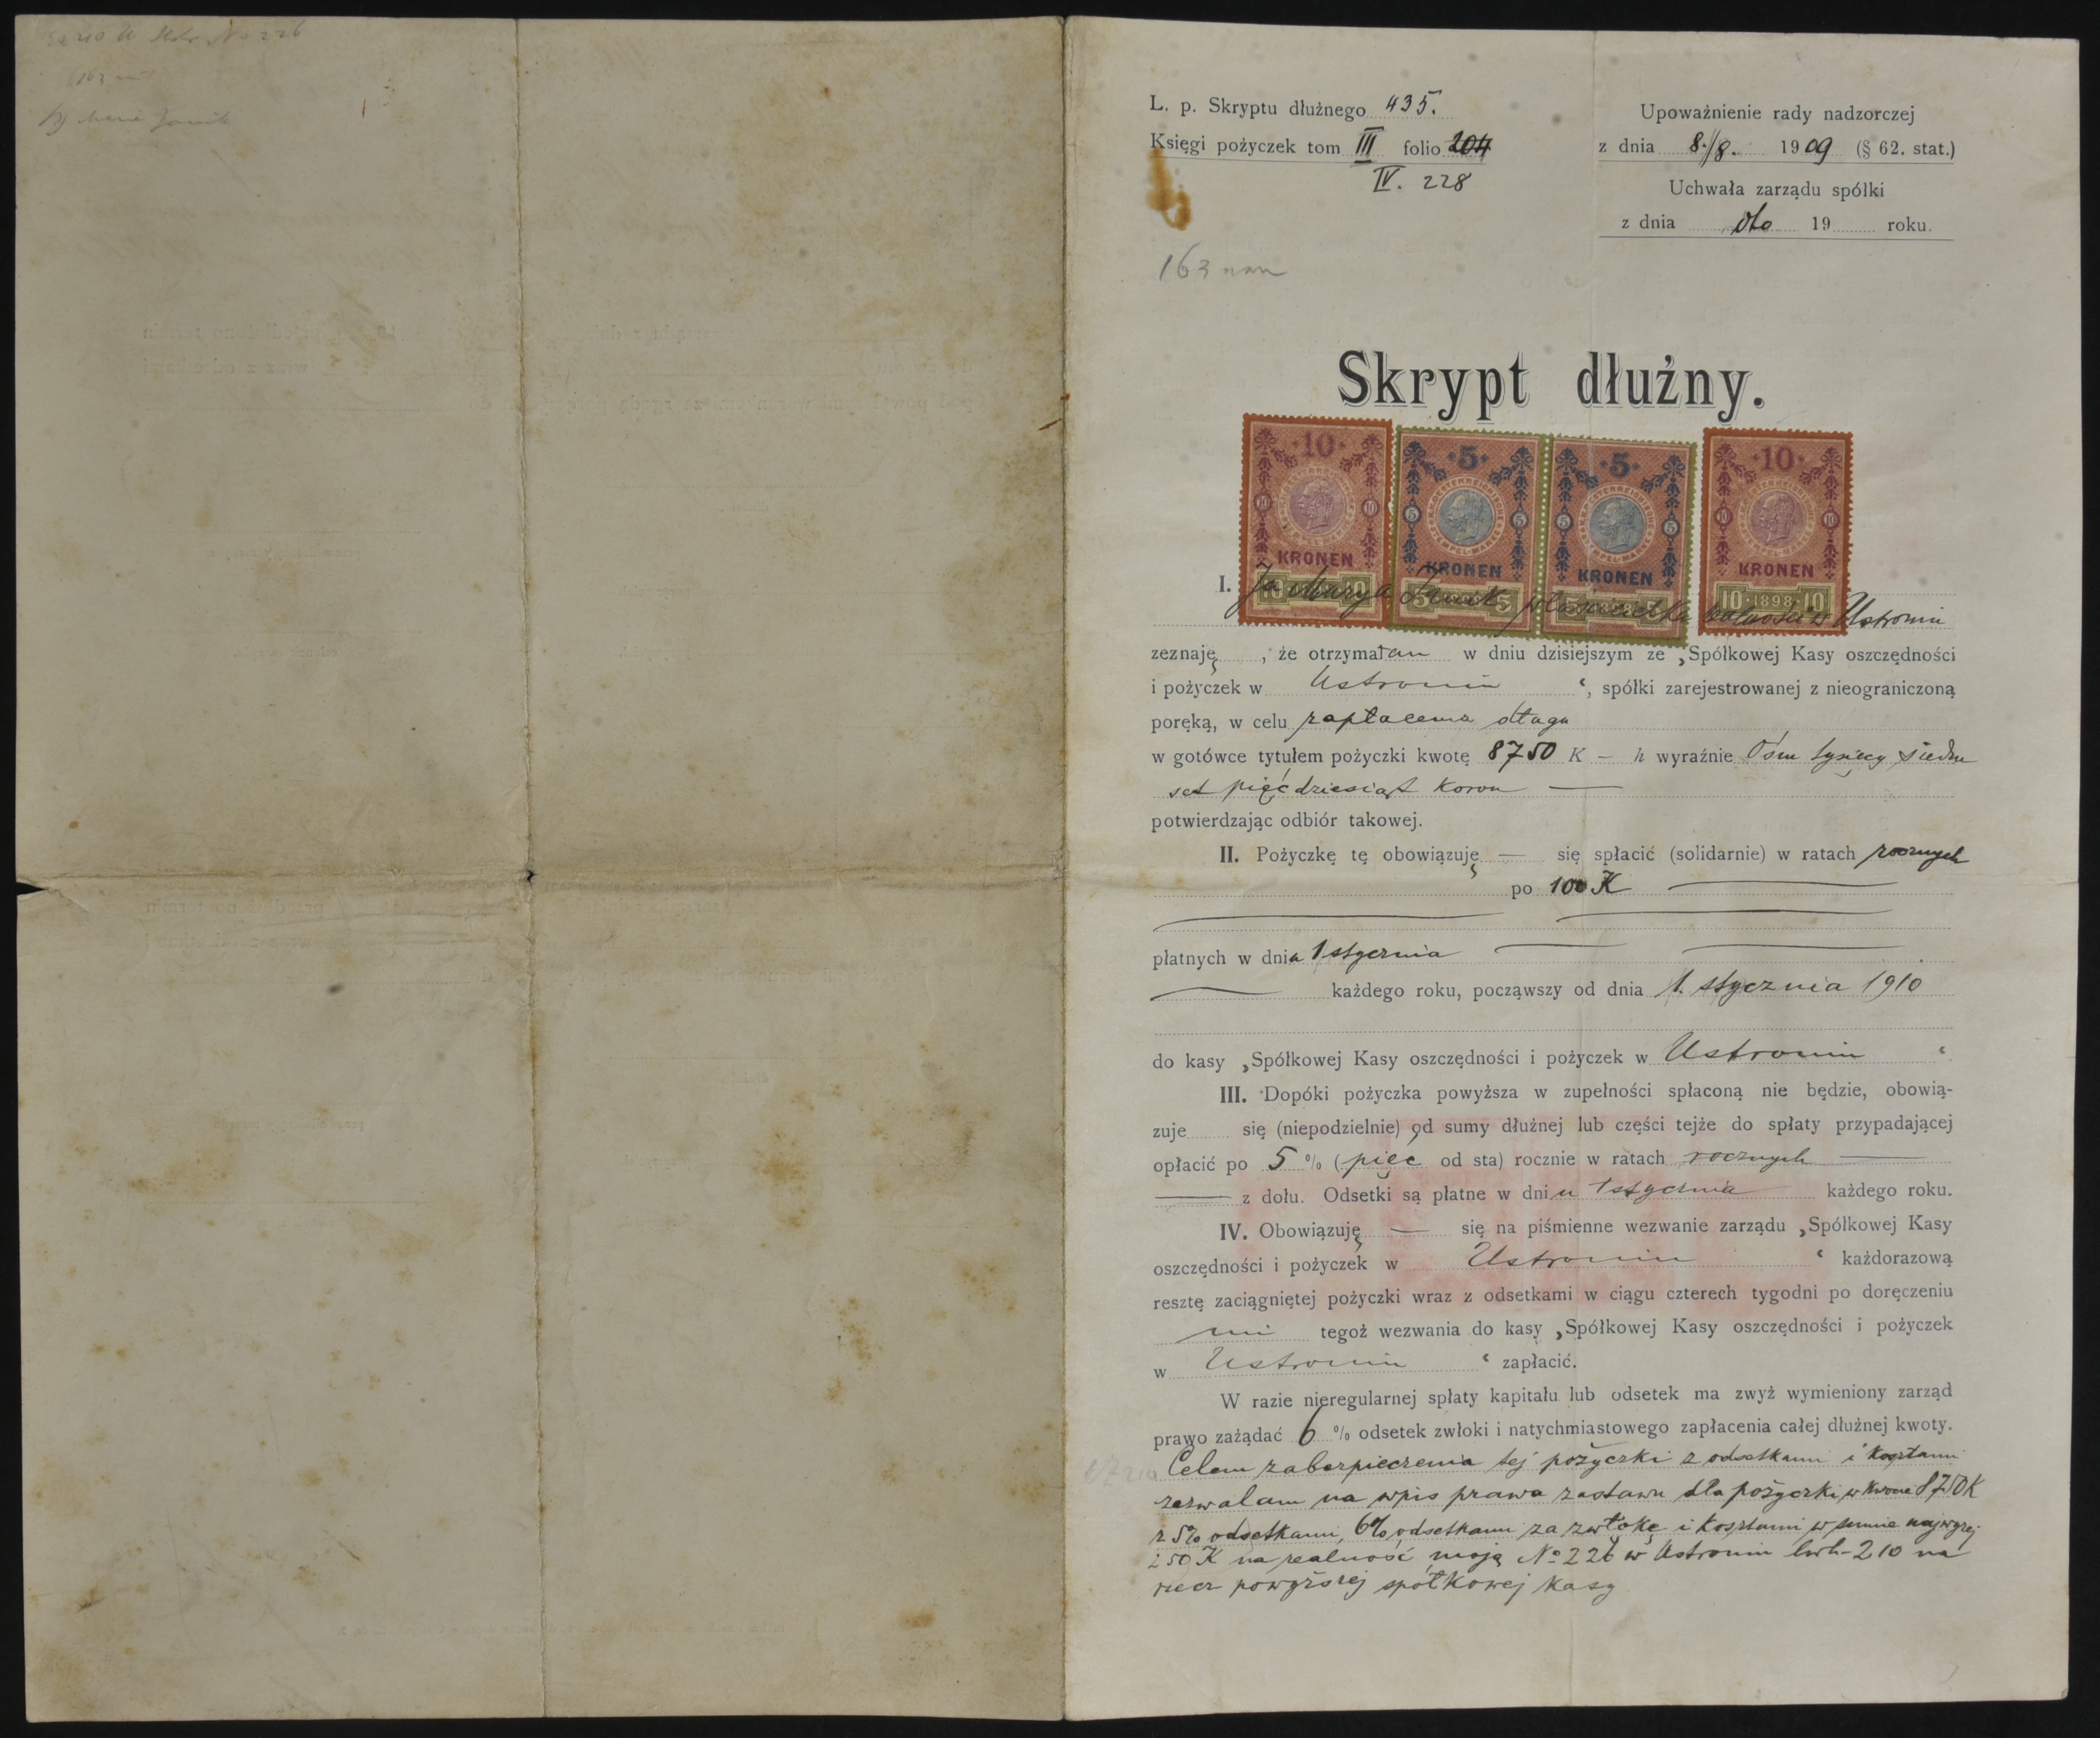 No 226
L. p. Skryptu dłużnego 435.
Księgi pożyczek tom III folio 204
IV. 228
Upoważnienie rady nadzorczej
z dnia 8./8. 1909 (§ 62. stat.)
Uchwała zarządu spółki
z dnia dto 19 roku.
163
Skrypt dłużny.
10 KRONEN 10 1898 10
5 KRONEN 5 1898 5
5 KRONEN 5 1898 5
10 KRONEN 10 1898 10
I. Ja Marya Janik, właścicielka realności w Ustroniu
zeznaję, że otrzymałam w dniu dzisiejszym ze „Spółkowej Kasy oszczędności
i pożyczek w Ustroniu“, spółki zarejestrowanej z nieograniczoną
poręką, w celu zapłacenia długu
w gotówce tytułem pożyczki kwotę 8750 K – h wyraźnie Ośm tysięcy siedm
set pięćdziesiąt koron —
potwierdzając odbiór takowej.
II. Pożyczkę tę obowiązuję — się spłacić (solidarnie) w ratach rocznych
po 100 K —
płatnych w dniu 1 stycznia —
— każdego roku, począwszy od dnia 1. stycznia 1910
do kasy „Spółkowej Kasy oszczędności i pożyczek w Ustroniu“
III. Dopóki pożyczka powyższa w zupełności spłaconą nie będzie, obowią-
zuje się (niepodzielnie) od sumy dłużnej lub części tejże do spłaty przypadającej
opłacić po 5 % (pięć od sta) rocznie w ratach rocznych —
— z dołu. Odsetki są płatne w dniu 1 stycznia każdego roku.
IV. Obowiązuję — się na piśmienne wezwanie zarządu „Spółkowej Kasy
oszczędności i pożyczek w Ustroniu“ każdorazową
resztę zaciągniętej pożyczki wraz z odsetkami w ciągu czterech tygodni po doręczeniu
mi tegoż wezwania do kasy „Spółkowej Kasy oszczędności i pożyczek
w Ustroniu“ zapłacić.
W razie nieregularnej spłaty kapitału lub odsetek ma zwyż wymieniony zarząd
prawo zażądać 6 % odsetek zwłoki i natychmiastowego zapłacenia całej dłużnej kwoty.
Celem zabezpieczenia tej pożyczki z odsetkami i kosztami
zezwalam na wpis prawa zastawu dla pożyczki w kwocie 8750 K
z 5% odsetkami, 6% odsetkami za zwłokę i kosztami w sumie najwyżej
250 K na realność moją No 226 w Ustroniu lwh. 210 na
rzecz powyższej spółkowej kasy